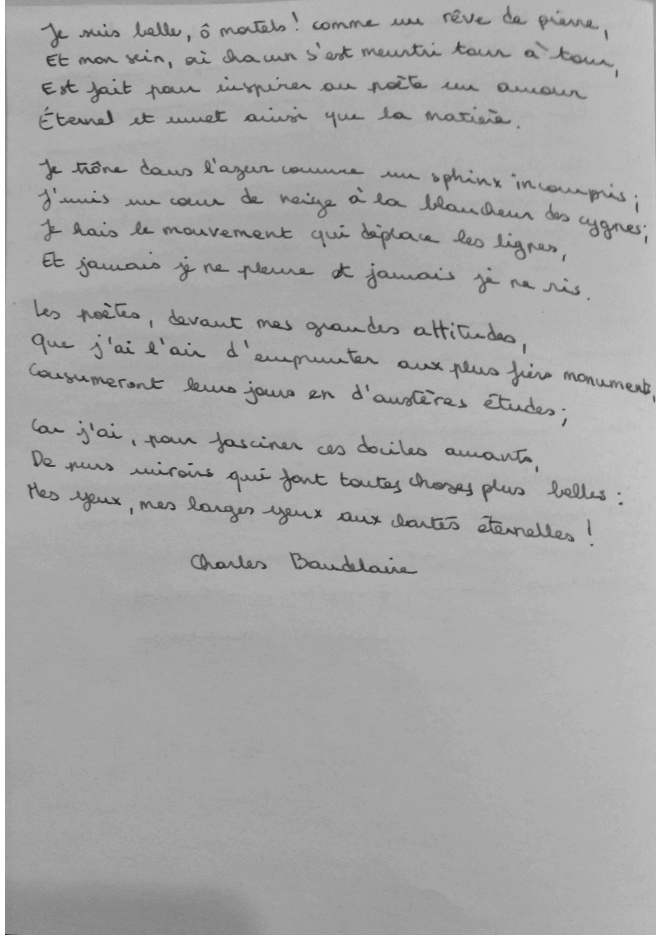 Je suis belle, ô mortels ! comme un rêve de pierre,
Et mon sein, où chacun s'est meurtri tour à tour,
Est fait pour inspirer au poète un amour
Éternel et muet ainsi que la matière.
Je trône dans l'azur comme un sphinx incompris ;
J'unis un cœur de neige à la blancheur des cygnes ;
Je hais le mouvement qui déplace les lignes,
Et jamais je ne pleure et jamais je ne ris.
Les poètes, devant mes grandes attitudes,
Que j'ai l'air d'emprunter aux plus fiers monuments,
Consumeront leurs jours en d'austères études ;
Car j'ai, pour fasciner ces dociles amants,
De purs miroirs qui font toutes choses plus belles :
Mes yeux, mes larges yeux aux clartés éternelles !
Charles Baudelaire